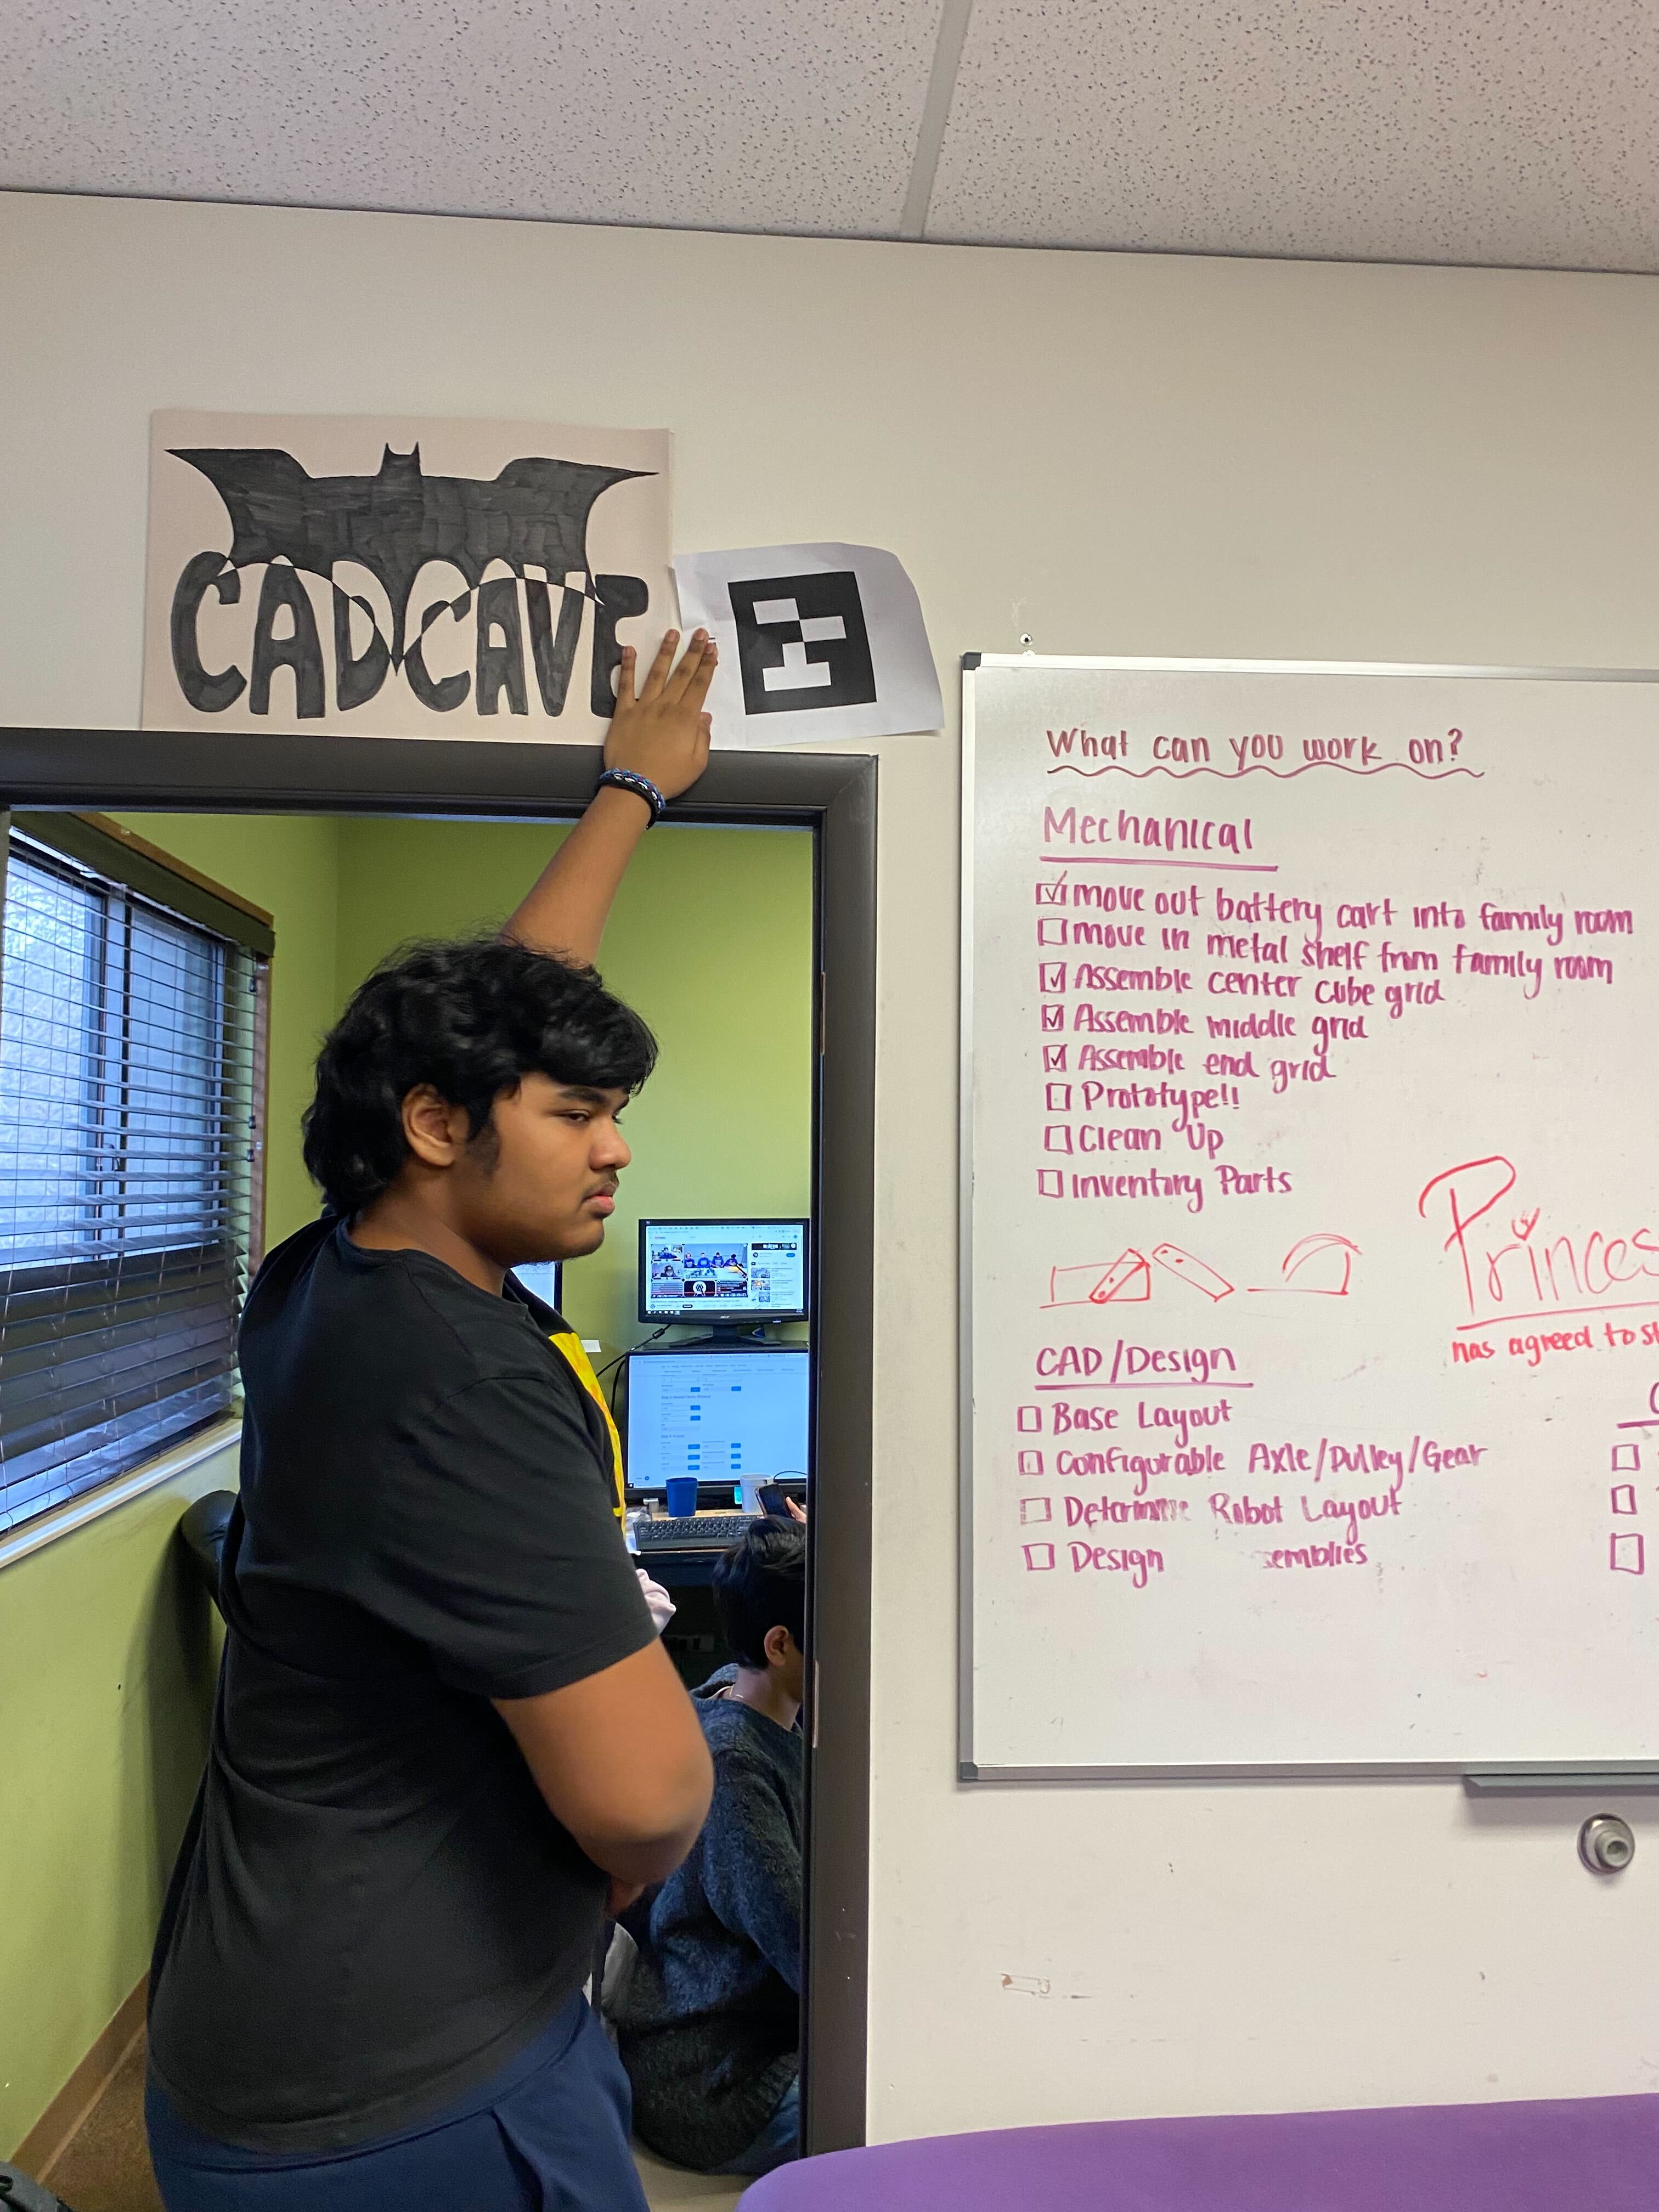 CADCAVE
What can you work on?
Mechanical
move out battery cart into family room
move in metal shelf from family room
Assemble center cube grid
Assemble middle grid
Assemble end grid
Prototype!!
Clean Up
Inventory Parts
Princes
has agreed to st
CAD/Design
Base Layout
Configurable Axle/Pulley/Gear
Determine Robot Layout
Design emblies